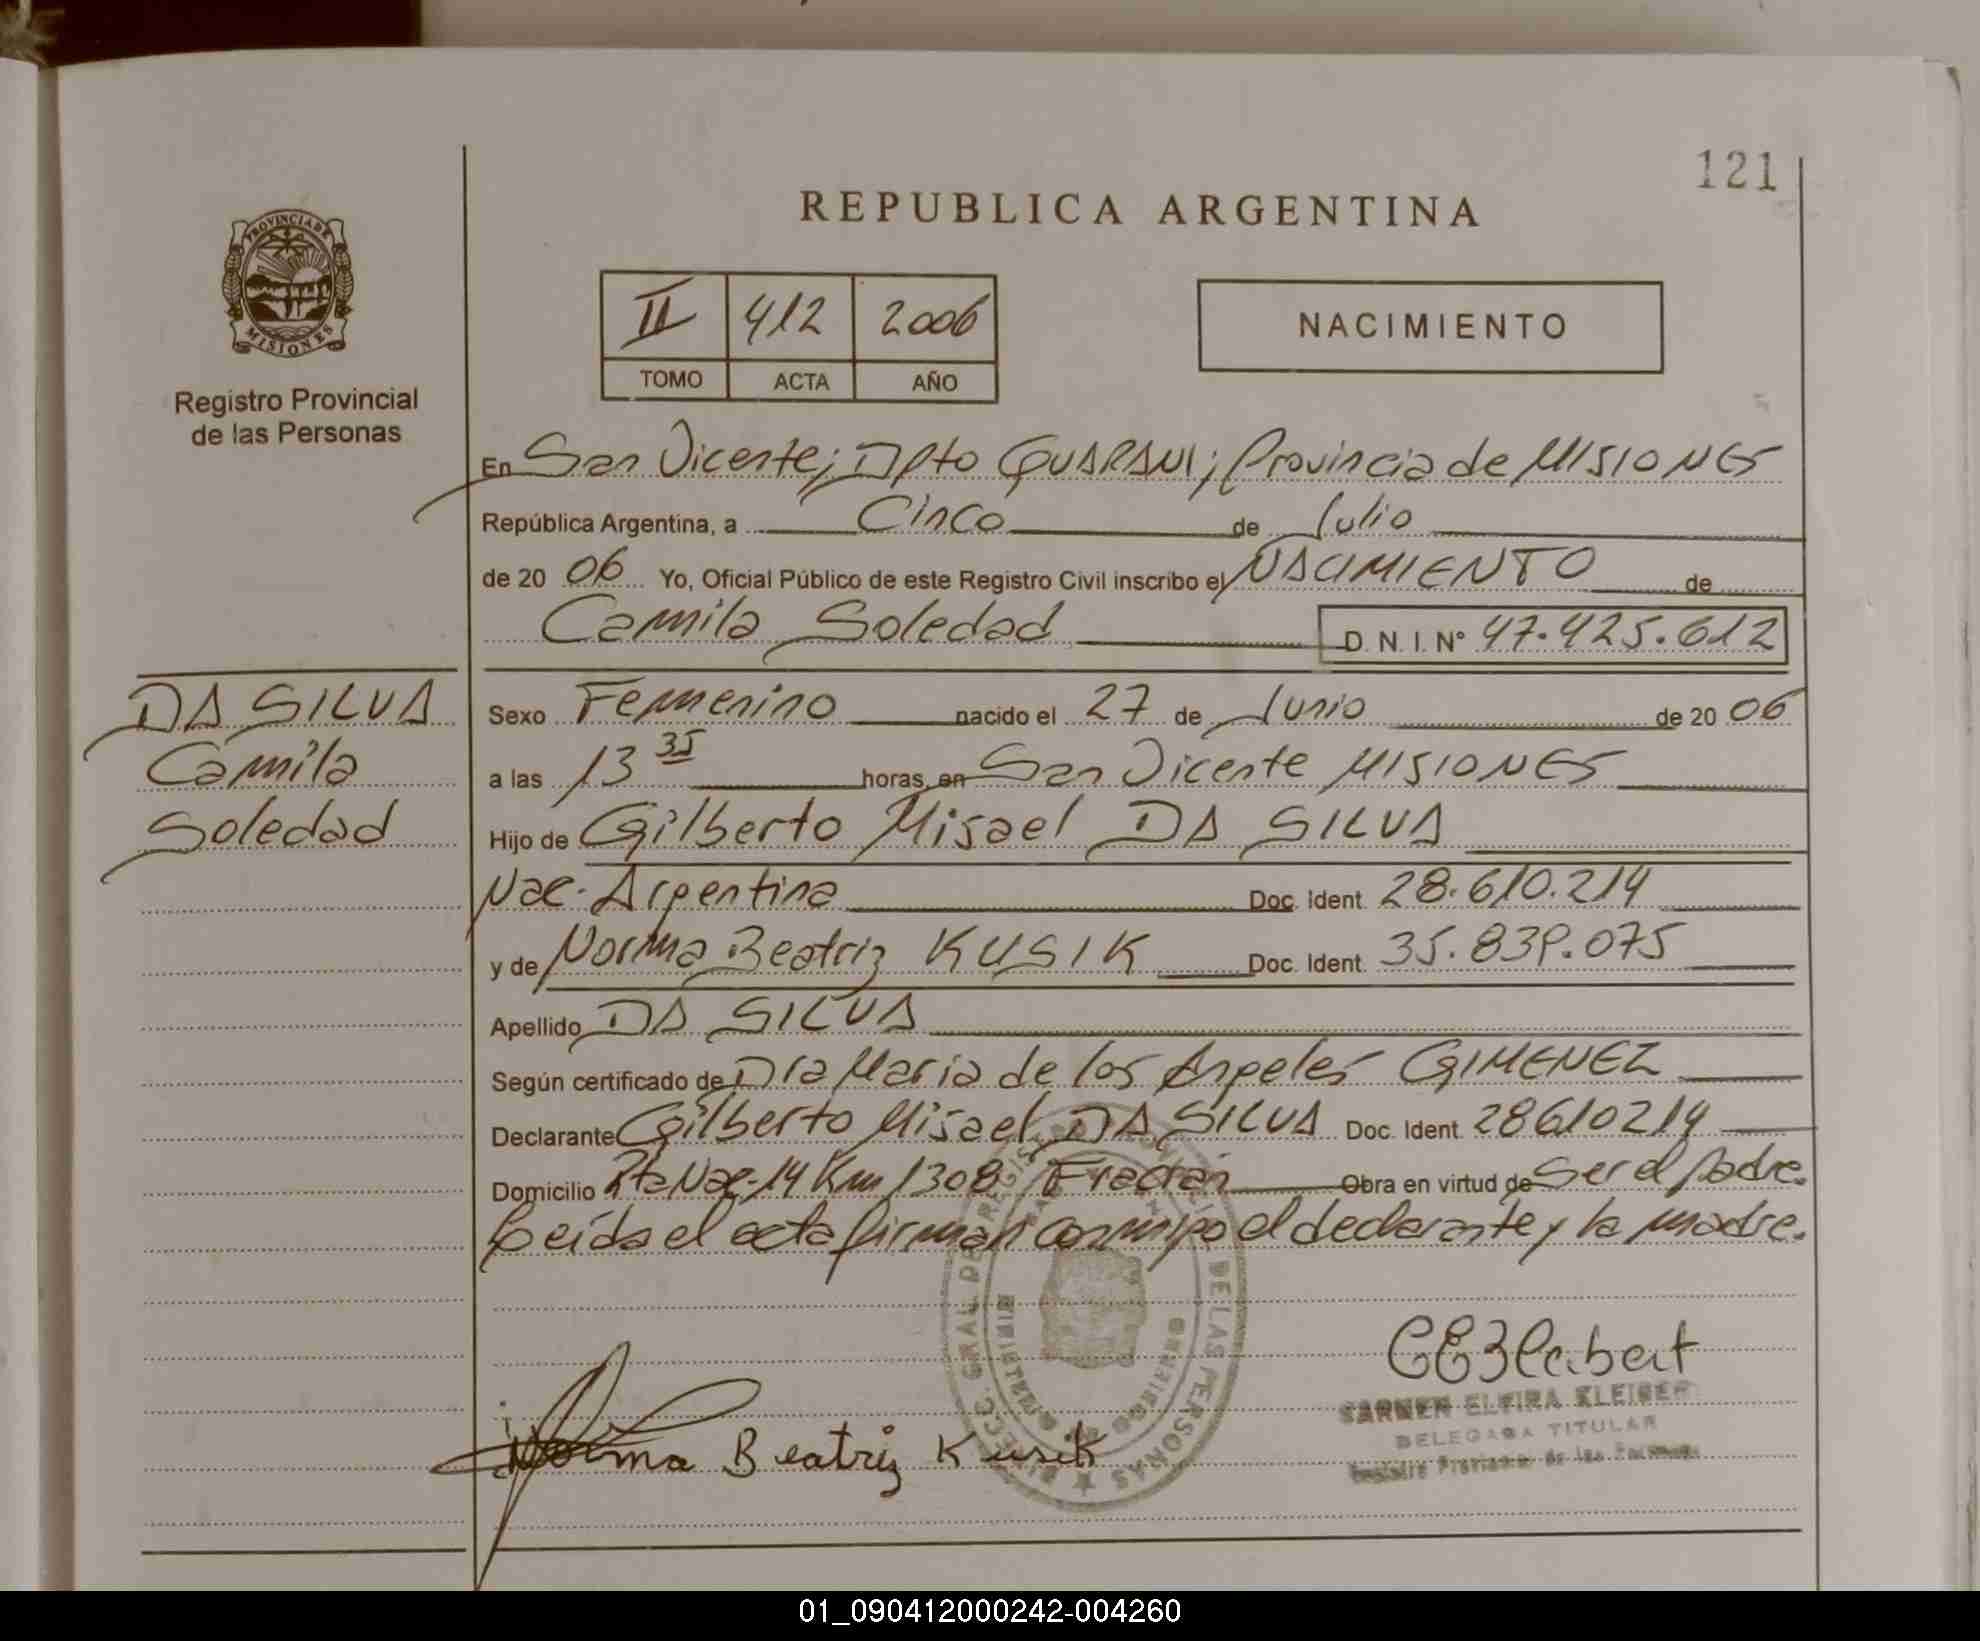 121
REPUBLICA ARGENTINA
PROVINCIA DE
MISIONES
Registro Provincial
de las Personas
II 412 2006
TOMO ACTA AÑO
NACIMIENTO
En San Vicente; Dpto GUARANI; Provincia de MISIONES
República Argentina, a Cinco de Julio
de 20 06 Yo, Oficial Público de este Registro Civil inscribo el NACIMIENTO de
Camila Soledad D.N.I. Nº 47.425.612
DA SILVA
Camila
Soledad
Sexo Femenino nacido el 27 de Junio de 20 06
a las 13 35 horas, en San Vicente MISIONES
Hijo de Gilberto Misael DA SILVA
Nac. Argentina Doc. Ident. 28.610.214
y de Norma Beatriz KUSIK Doc. Ident. 35.839.075
Apellido DA SILVA
Según certificado de Dra Maria de los Angeles GIMENEZ
Declarante Gilberto Misael DA SILVA Doc. Ident. 28610214
Domicilio Rta Nac. 14 Km 1308 Fracrán Obra en virtud de ser el padre.
Leída el acta firman conmigo el declarante y la madre.
DIRECC. GRAL. DE REGISTRO PROVINCIAL DE LAS PERSONAS
MINISTERIO GOBIERNO
Norma Beatriz Kusik
CARMEN ELFIRA KLEIBER
DELEGADA TITULAR
Registro Provincial de las Personas
01_090412000242-004260